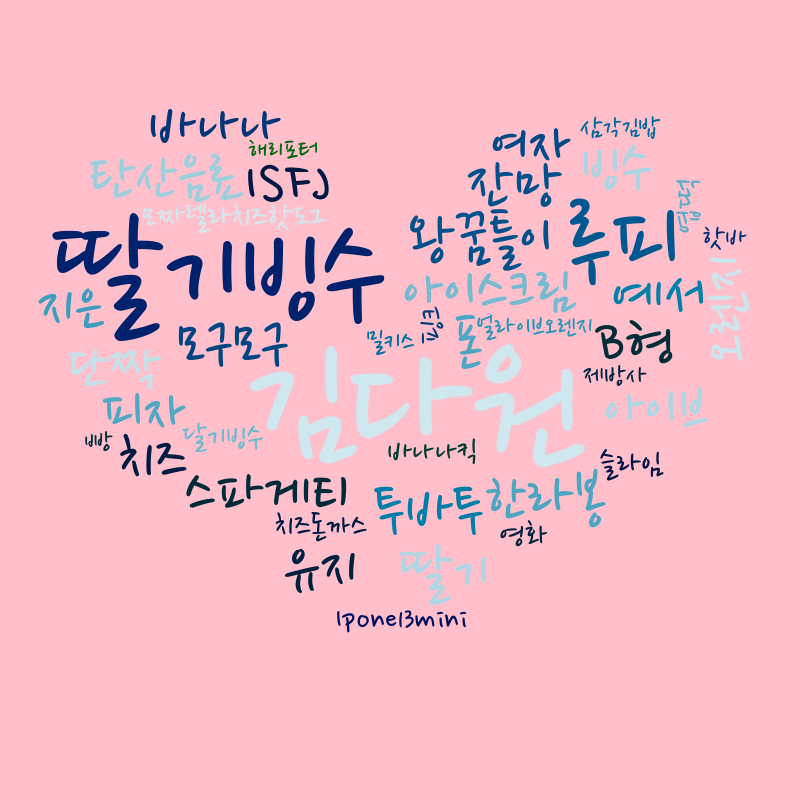 바나나
해리포터
탄산음료
ISFJ
모짜렐라치즈핫도그
딸기빙수
지은
모구모구
단짝
피자
빵
치즈
딸기빙수
삼각김밥
여자
빙수
잔망
왕꿈틀이
루피
핫바
아이스크림
예서
오렌지
밀키스
폰
얼라이브오렌지
B형
제방사
김다원
아이브
바나나킥
슬라임
스파게티
투바투
한라봉
치즈돈까스
영화
유지
딸기
Ipone13mini